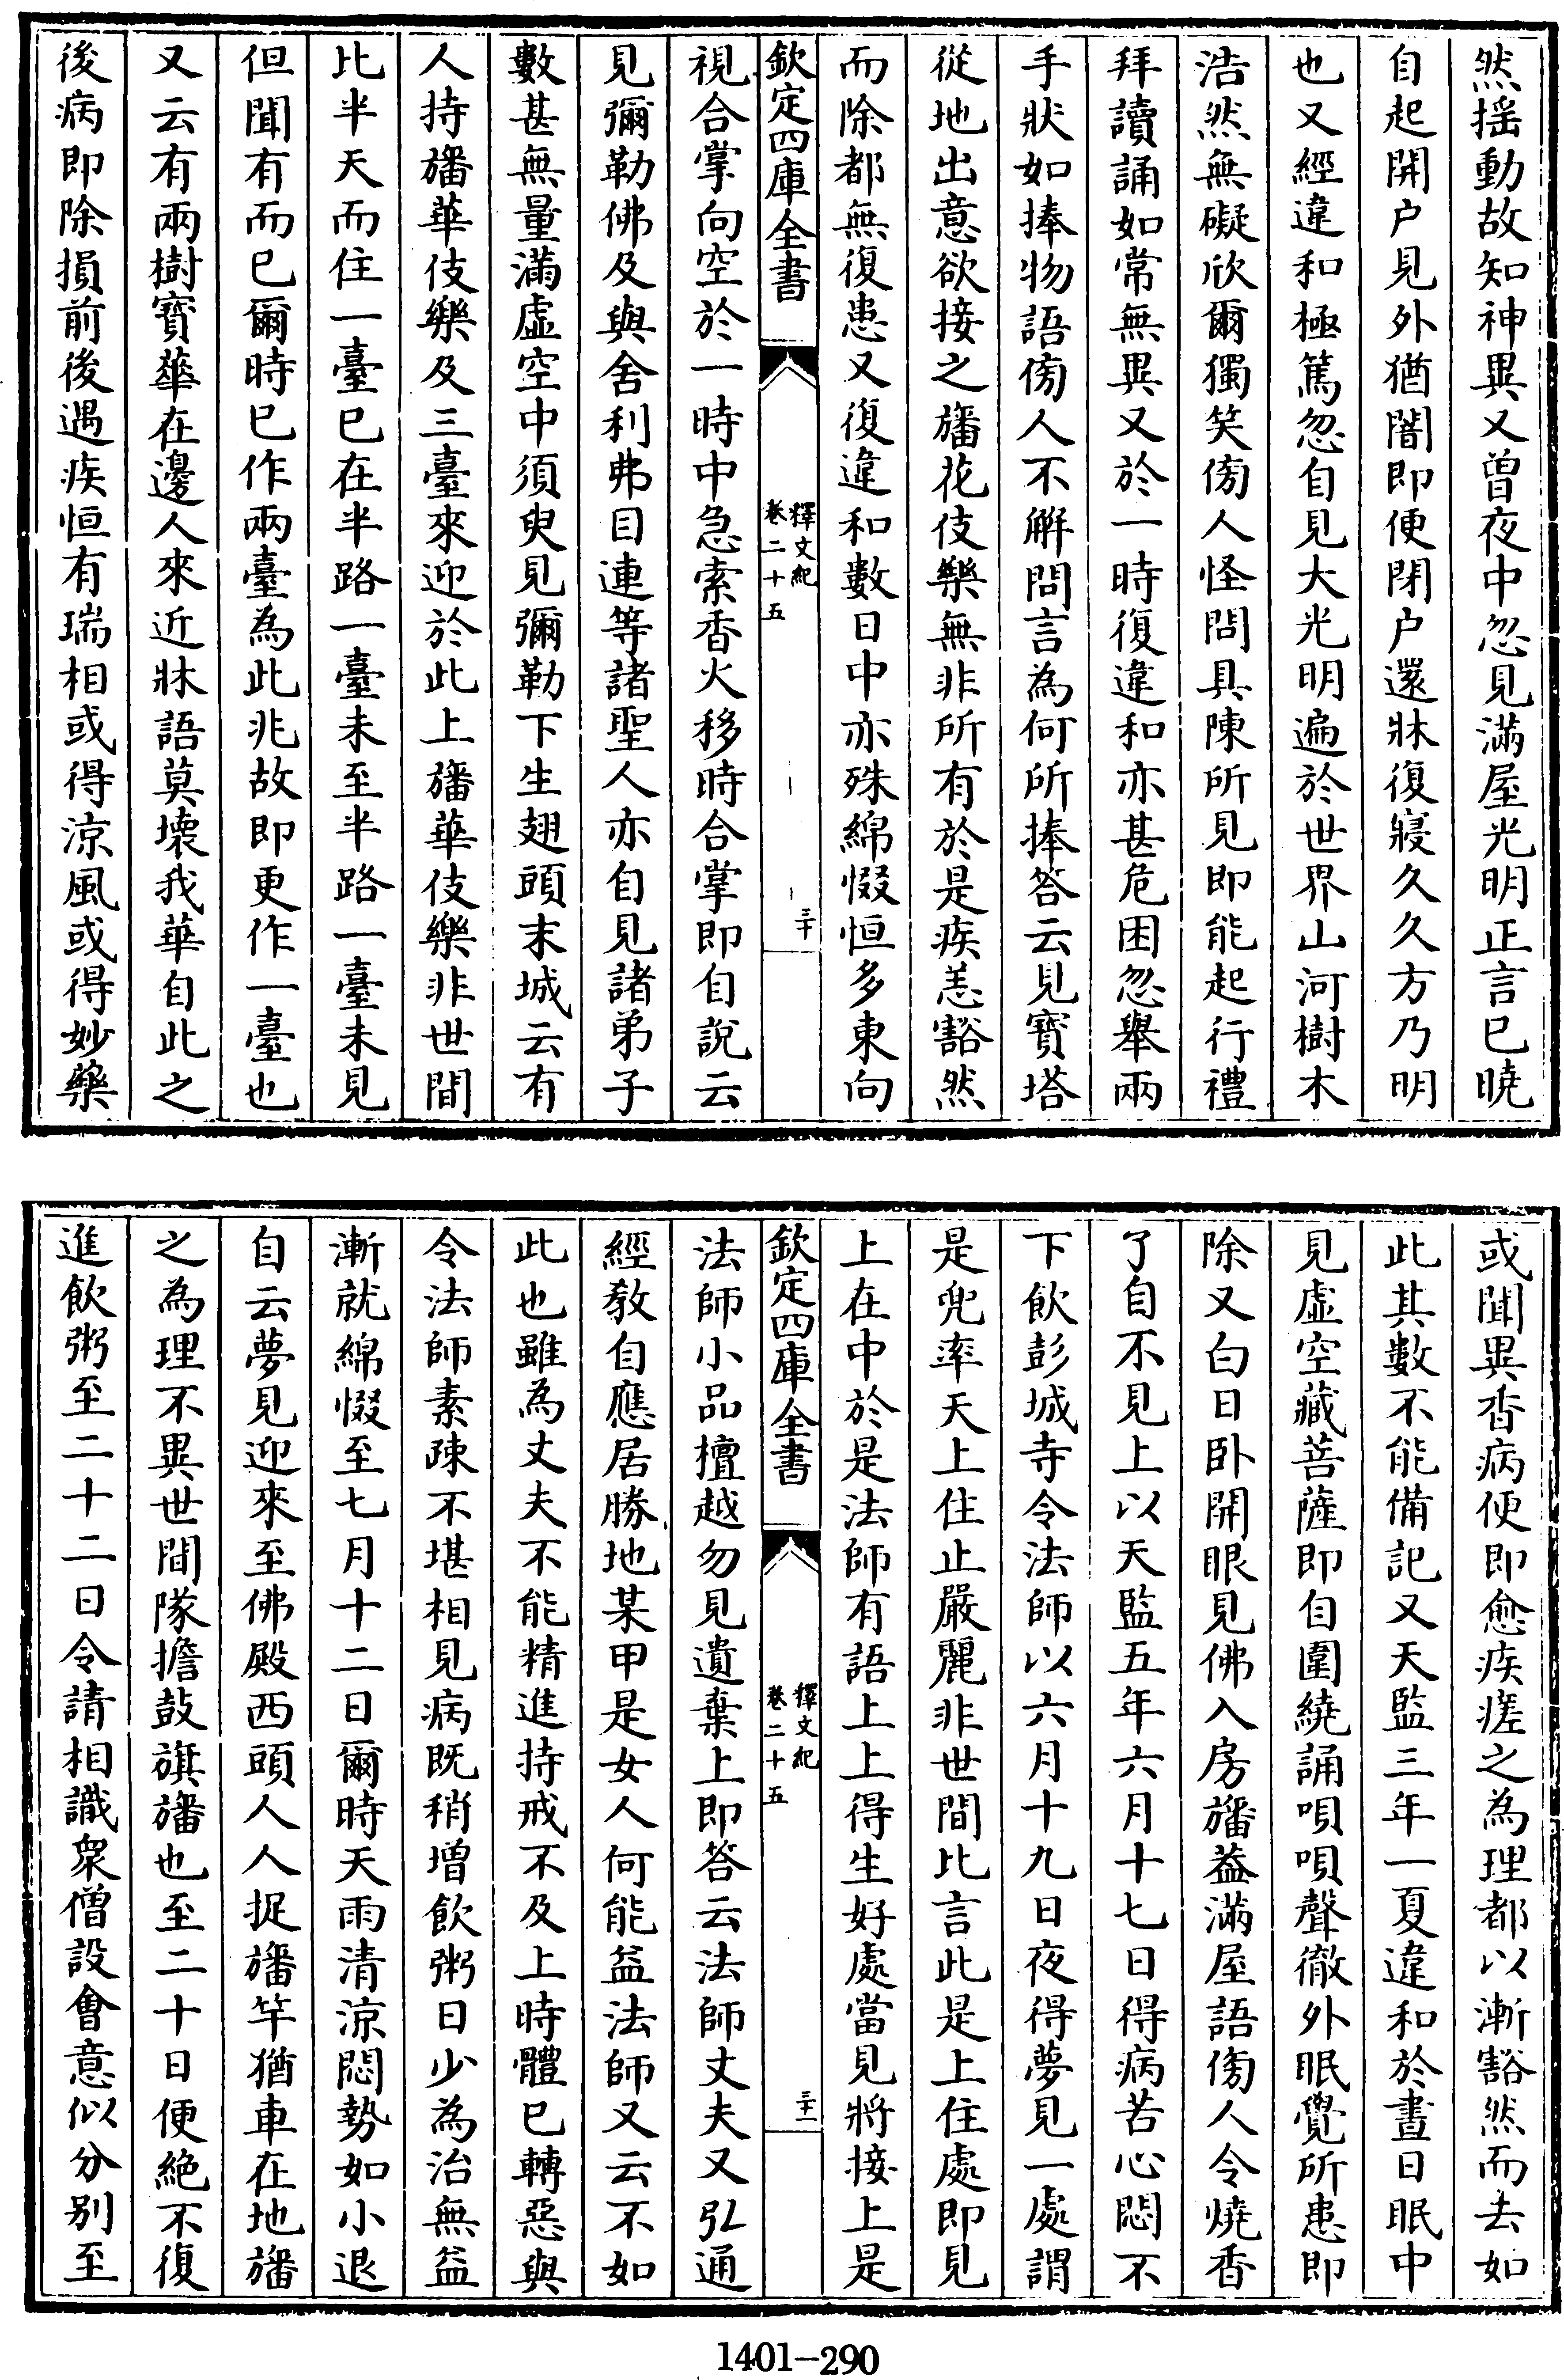 然揺動故知神異又曽夜中忽見滿屋光明正言已曉
自起開户見外猶闇即便閉户還牀復寢久久方乃明
也又經違和極篤忽自見大光明遍於世界山河樹木
浩然無礙欣爾獨笑傍人怪問具陳所見即能起行禮
拜讀誦如常無異又於一時復違和亦甚危困忽舉兩
手狀如捧物語傍人不解問言為何所捧答云見寳塔
從地出意欲接之旛花伎樂無非所有於是疾恙豁然
而除都無復患又復違和數日中亦殊綿惙恒多東向
欽定四庫全書
釋文紀
卷二十五
三十
視合掌向空於一時中急索香火移時合掌即自說云
見彌勒佛及與舍利弗目連等諸聖人亦自見諸弟子
數甚無量滿虛空中須臾見彌勒下生翅頭末城云有
人持旛華伎樂及三臺來迎於此上旛華伎樂非世間
比半天而住一臺已在半路一臺未至半路一臺未見
但聞有而已爾時已作兩臺為此兆故即更作一臺也
又云有兩樹寳華在邊人來近牀語莫壞我華自此之
後病即除損前後遇疾恒有瑞相或得涼風或得妙藥
或聞異香病便即愈疾瘥之為理都以漸豁然而去如
此其數不能備記又天監三年一夏違和於晝日眠中
見虛空藏菩薩即自圍繞誦唄唄聲徹外眠覺所患即
除又白日卧開眼見佛入房旛葢滿屋語傍人令燒香
了自不見上以天監五年六月十七日得病苦心悶不
下飲彭城寺令法師以六月十九日夜得夢見一處謂
是兜率天上住止嚴麗非世間比言此是上住處即見
上在中於是法師有語上上得生好處當見將接上是
欽定四庫全書
釋文紀
卷二十五
三十一
法師小品檀越勿見遺棄上即答云法師丈夫又弘通
經教自應居勝地某甲是女人何能益法師又云不如
此也雖為丈夫不能精進持戒不及上時體已轉惡與
令法師素疎不堪相見病既稍增飲粥日少為治無益
漸就綿惙至七月十二日爾時天雨清涼悶勢如小退
自云夢見迎來至佛殿西頭人人捉旛竿猶車在地旛
之為理不異世間隊擔鼓旗旛也至二十日便絶不復
進飲粥至二十二日令請相識衆僧設㑹意似分别至
1401-290